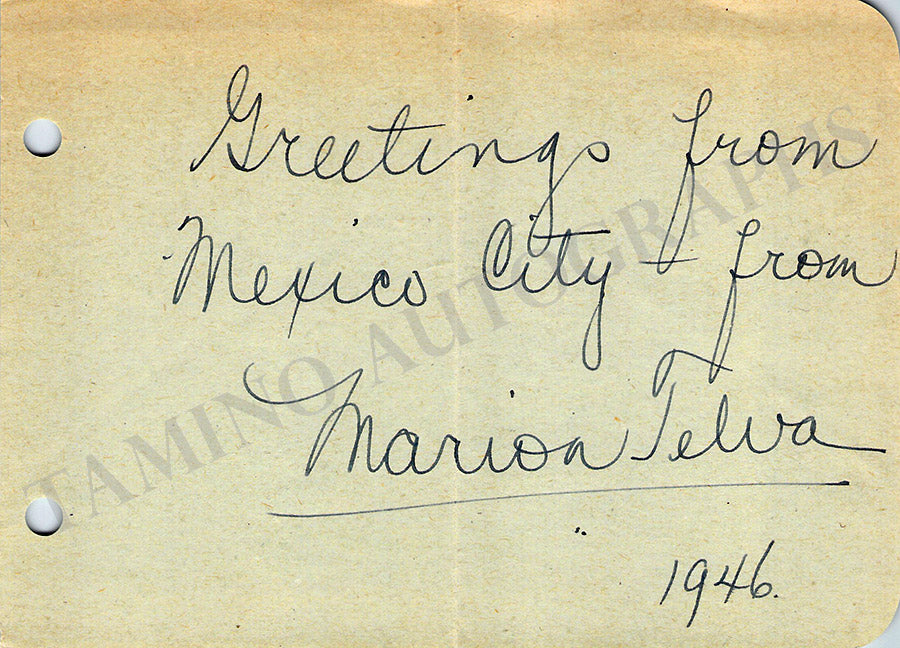 Greetings from
Mexico City - from
Marion Telva
1946.
TAMINO AUTOGRAPHS